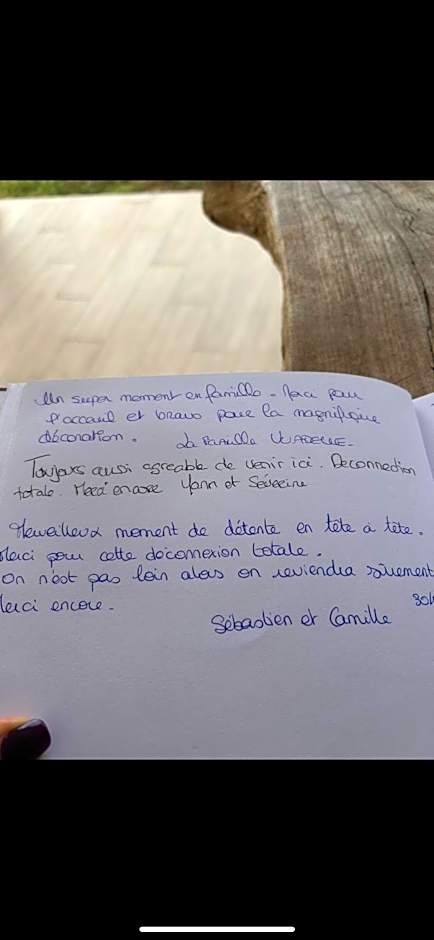 Un super moment en famille. Merci pour
l'accueil et bravo pour la magnifique
décoration. La Famille
Toujours aussi agréable de venir ici. Deconnection
totale. Merci encore Yann et Séverine
Merveilleux moment de détente en tête à tête.
Merci pour cette déconnexion totale.
On n'est pas loin alors on reviendra sûrement
Merci encore.
Sébastien et Camille